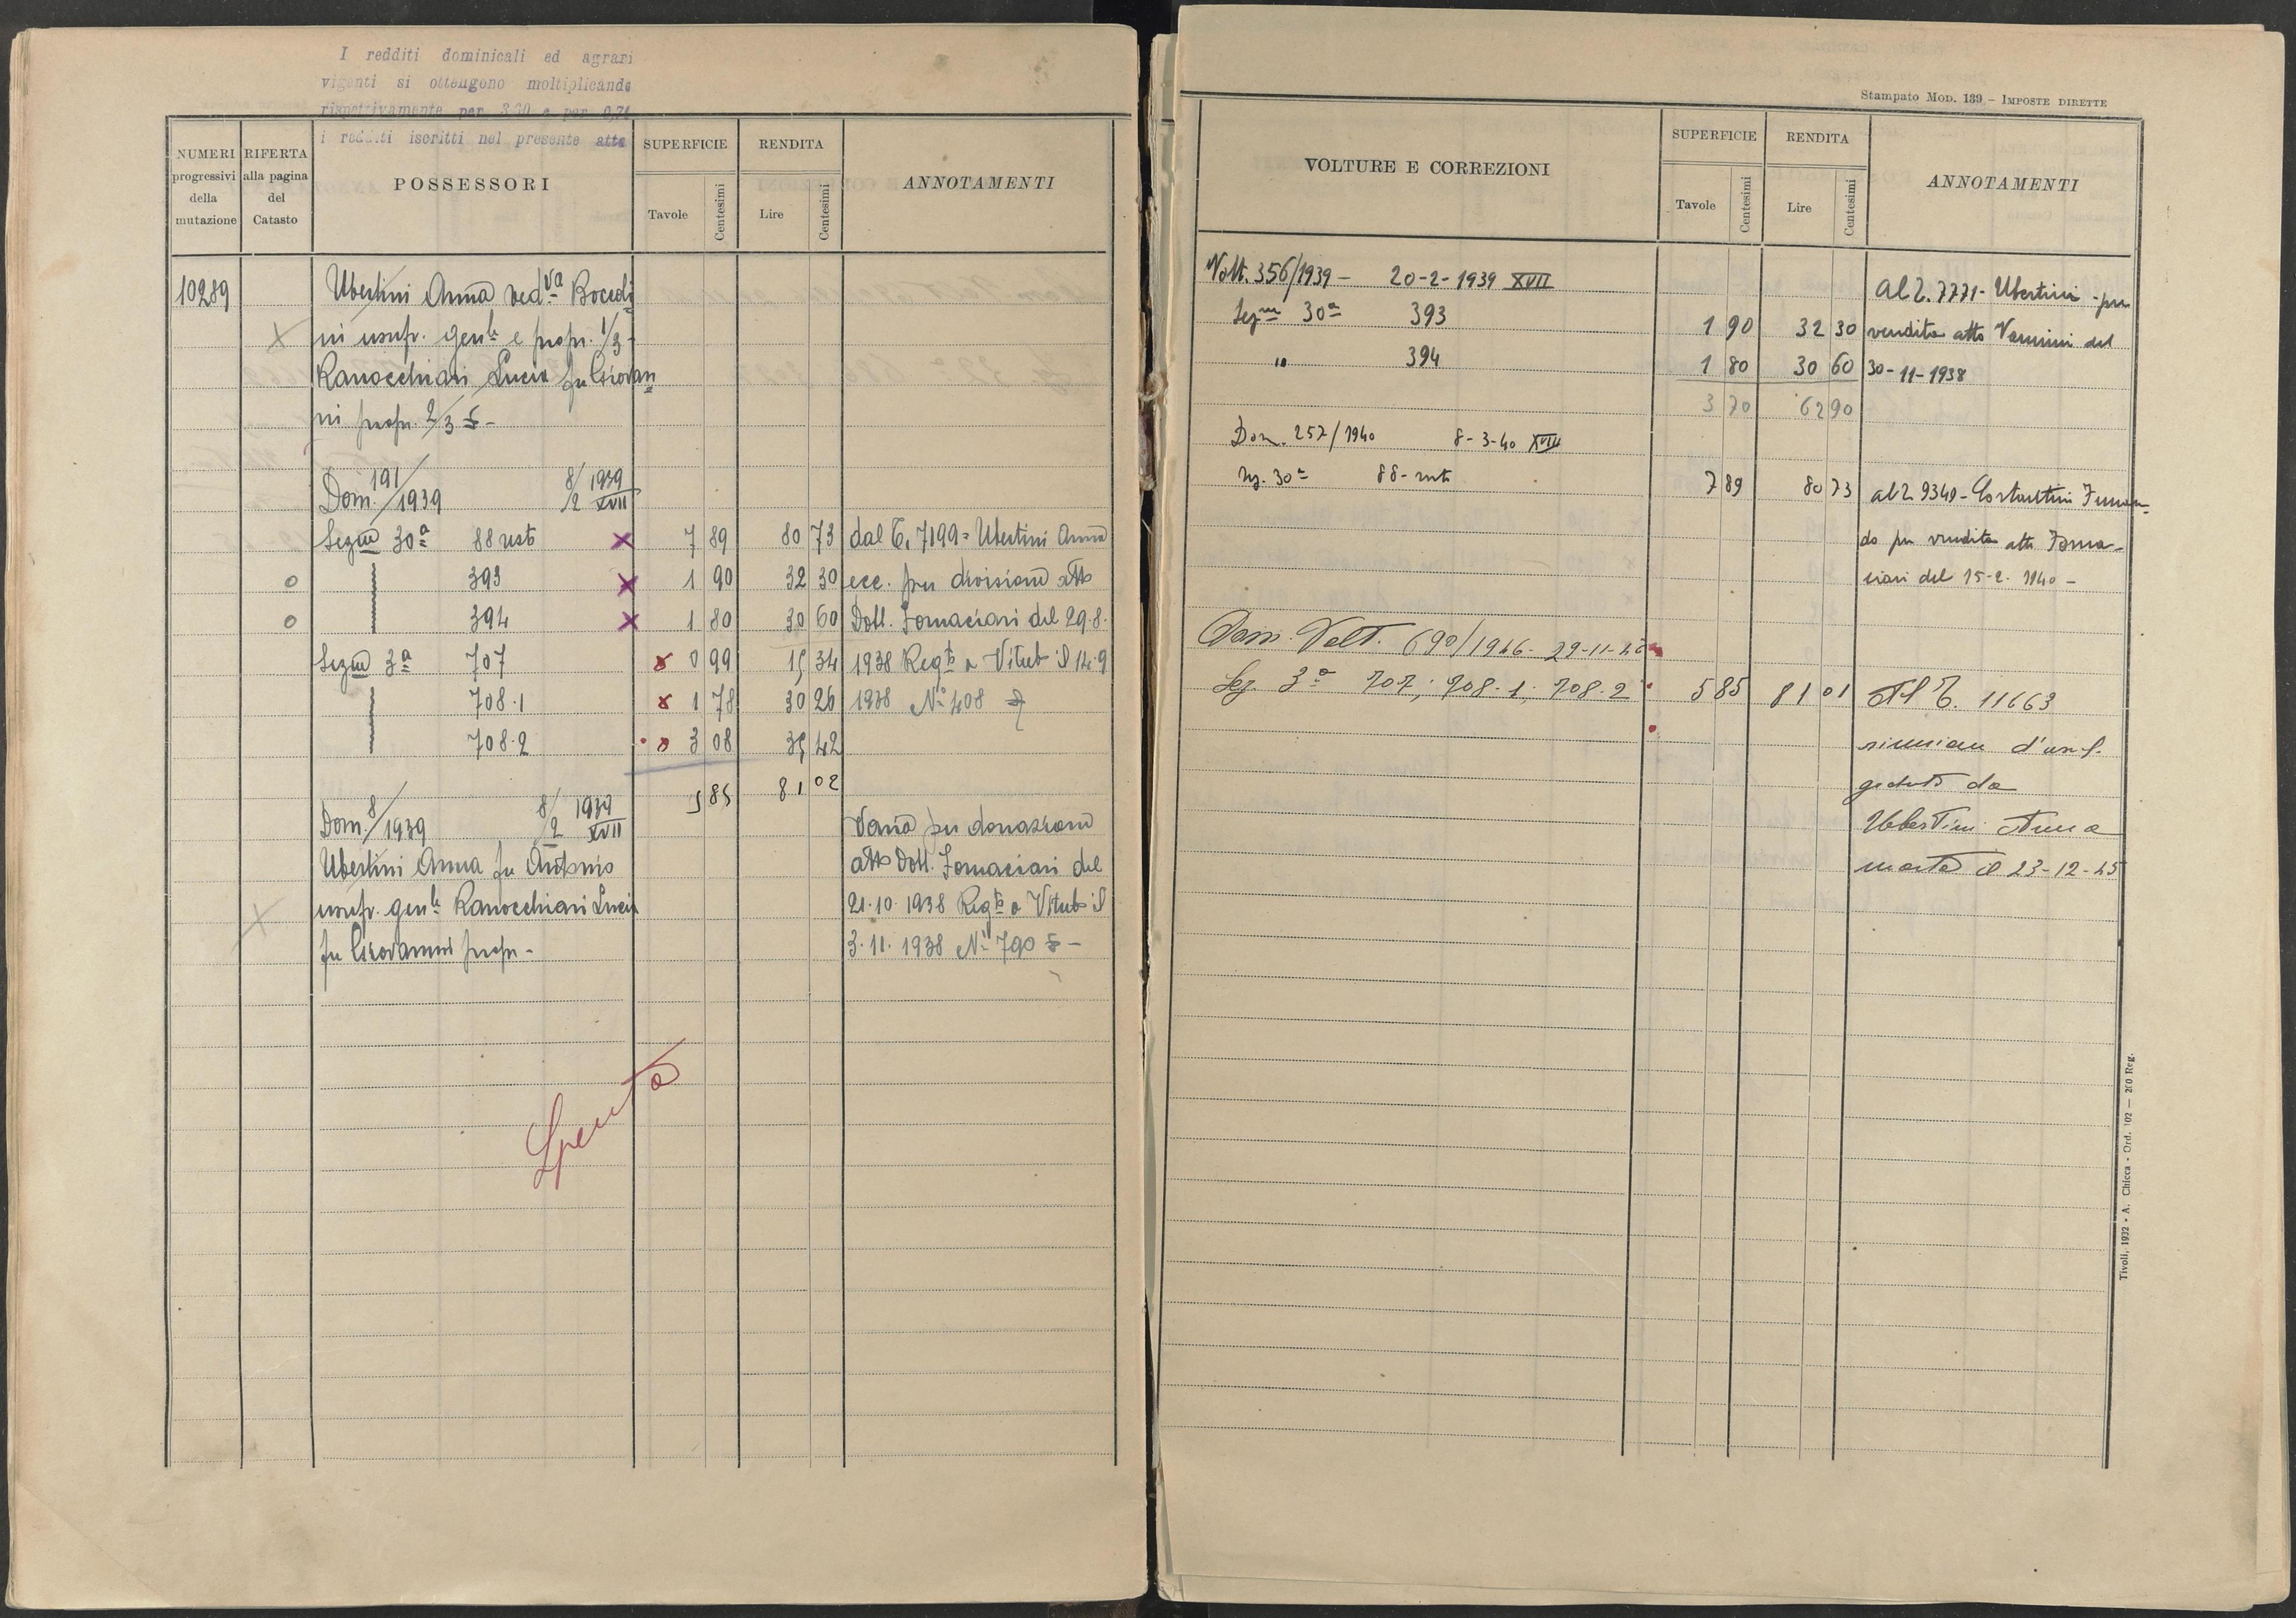 I redditi dominicali ed agrari
vigenti si ottengono moltiplicando
rispettivamente per 3,00 e per 0,74
i redditi iscritti nel presente atto
NUMERI progressivi della mutazione
RIFERTA alla pagina del Catasto
POSSESSORI
SUPERFICIE
Tavole Centesimi
RENDITA
Lire Centesimi
ANNOTAMENTI
10289 Ubertini Anna ved.va Bocedi
ni usufr. gen.le e propr. 1/3 -
Ranocchiari Lucia fu Giovan
ni propr. 2/3
Dom. 191/1939 8/2 1939 XVII
Sezne 30a 88 resto x 7 89 80 73 dal T. 7199 = Ubertini Anna
o 393 x 1 90 32 30 ecc. per divisione atto
o 394 x 1 80 30 60 Dott. Fornaciari del 29.8.
Sezne 3a 707 x 0 99 15 34 1938 Regto a Viterbo il 14.9
708.1 x 1 78 30 26 1938 No 408
708.2 x 3 08 35 42
5 85 81 02
Dom. 8/1939 8/2 1939 XVII
Varia per donazione
Ubertini Anna fu Antonio atto Dott. Fornaciari del
usufr. gen.le Ranocchiari Lucia 21.10.1938 Regto a Viterbo il
fu Giovanni propr - 3.11.1938 No 790
Spenta
Stampato Mod. 139 - Imposte dirette
VOLTURE E CORREZIONI
SUPERFICIE
Tavole Centesimi
RENDITA
Lire Centesimi
ANNOTAMENTI
Volt. 356/1939 - 20-2-1939 XVII Al T. 7771 - Ubertini - per
Sezne 30a 393 1 90 32 30 vendita atto Vannini del
" 394 1 80 30 60 30-11-1938
3 70 62 90
Dom. 257/1940 8-3-40 XVIII
Sez. 30a 88 - resto 7 89 80 73 al T. 9349 - Costantini Fernan-
do per vendita atto Forna-
ciari del 15-2-1940 -
Dom. Volt. 690/1946 - 29-11-46
Sez. 3a 707; 708.1; 708.2 5 85 81 01 Al T. 11663
riunione d'usuf.
goduto da
Ubertini Anna
morta il 23-12-45
Tivoli, 1932 - A. Chicca - Ord. 102 — 200 Reg.